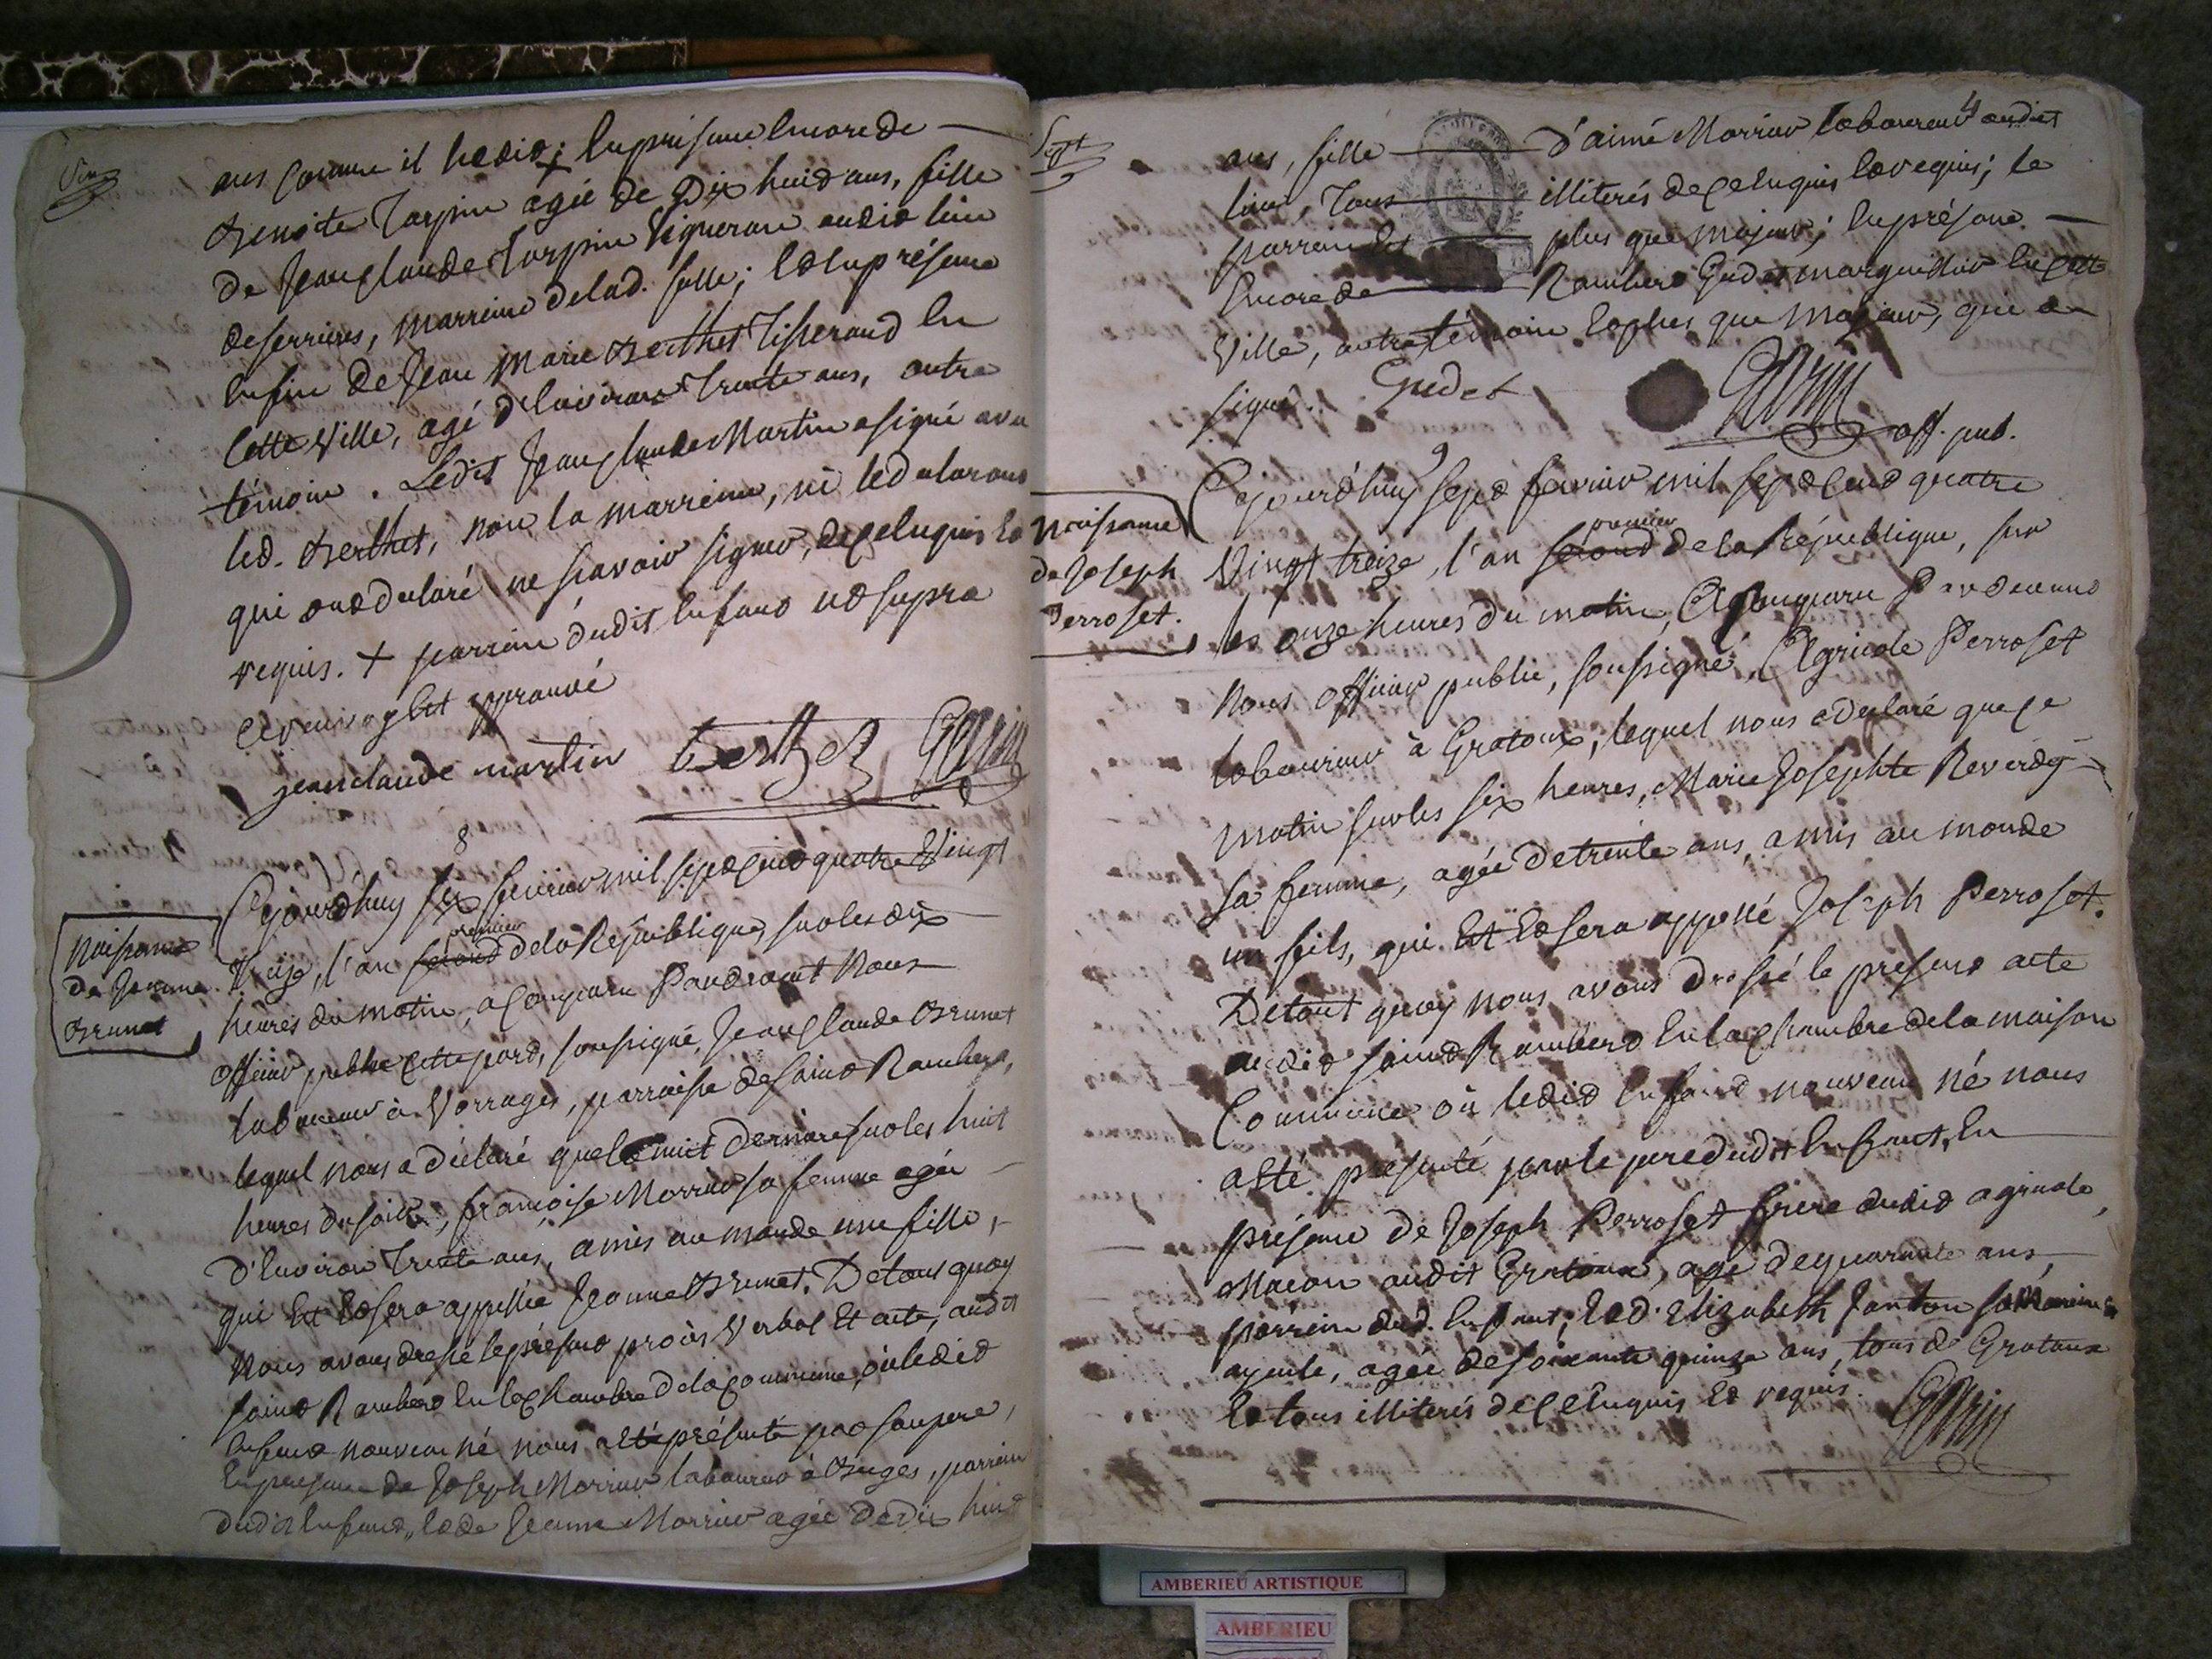 ans comme il l'a dit; En presence Encore de
Benoite Tarpin agée de Dix huit ans, fille
de Jean Claude Tarpin Vigneron audit lieu
de serrieres, marreine de lad. fille; Et En présence
Enfin de Jean Marie Berthet Tisserand En
Cette Ville, agé d'Environ Trente ans, autre
témoin. Ledit Jean Claude Martin a signé avec
led. Berthet, non la marreine, ni le declarant
qui ont declaré ne sçavoir signer, de ce Enquis Et
requis. + parrein dudit Enfant ut supra
Ce renvoy Est approuvé
jean claude martin Berthet
8
Naissance
de Jeanne
Brunet
Cejourd'huy six fevrier mil sept Cent quatre Vingt
Treize, l'an second premier de la République, sur les dix
heures du matin, a Comparu Pardevant Nous
officier public Cette part, soussigné, Jean Claude Brunet
laboureur à Vorrages, parroisse de saint Rambert,
lequel nous a déclaré que la nuit derniere sur les huit
heures du soir, françoise Morrier sa femme agée
d'Environ Trente ans, a mis au monde une fille,
qui Est Et sera appellée Jeanne Brunet. De tout quoy
Nous avons dressé le présent procès Verbal Et acte, audit
saint Rambert En la Chambre de la Commune, où ledit
Enfant nouveau né nous a Eté présenté par son pere,
En presence de Joseph Morrier laboureur à Buges, parrein
dudit Enfant, Et de Jeanne Morrier agée de Dix huit
Sept
4
ans, fille d'aimé Morrier laboureur audit
lieu, Tous illiterés de ce Enquis Et requis; le
parrein dit plus que majeur; En présence
Encore de Rambert Gudet marguillier En Cette
Ville, autre témoin Et plus que majeur, qui a
signé. Gudet
off. pub.
9
Naissance
de Joseph
Perroset.
Cejourd'huy sept fevrier mil sept Cent quatre
Vingt treize, l'an second premier de la République, sur
les onze heures du matin, a Comparu Pardevant
Nous officier public, soussigné, Agricole Perroset
laboureur à Gratoux, lequel nous a declaré que ce
matin sur les six heures, Marie Josephte Reverdy
sa femme, agée de trente ans, a mis au monde
un fils, qui Est Et sera appellé Joseph Perroset.
De tout quoy nous avons dressé le present acte
audit saint Rambert En la Chambre de la maison
Commune où ledit Enfant nouveau né nous
a Eté présenté par le pere dudit Enfant, En
présence de Joseph Perroset frere dudit agricole,
Macon audit Gratoux, agé de quarante ans,
parrein dud. Enfant; Et d'Elizabeth Janton sa Marreine
ayeule, agée de soixante quinze ans, tous de Gratoux
Et tous illiterés de ce Enquis Et requis.
AMBERIEU ARTISTIQUE
AMBERIEU